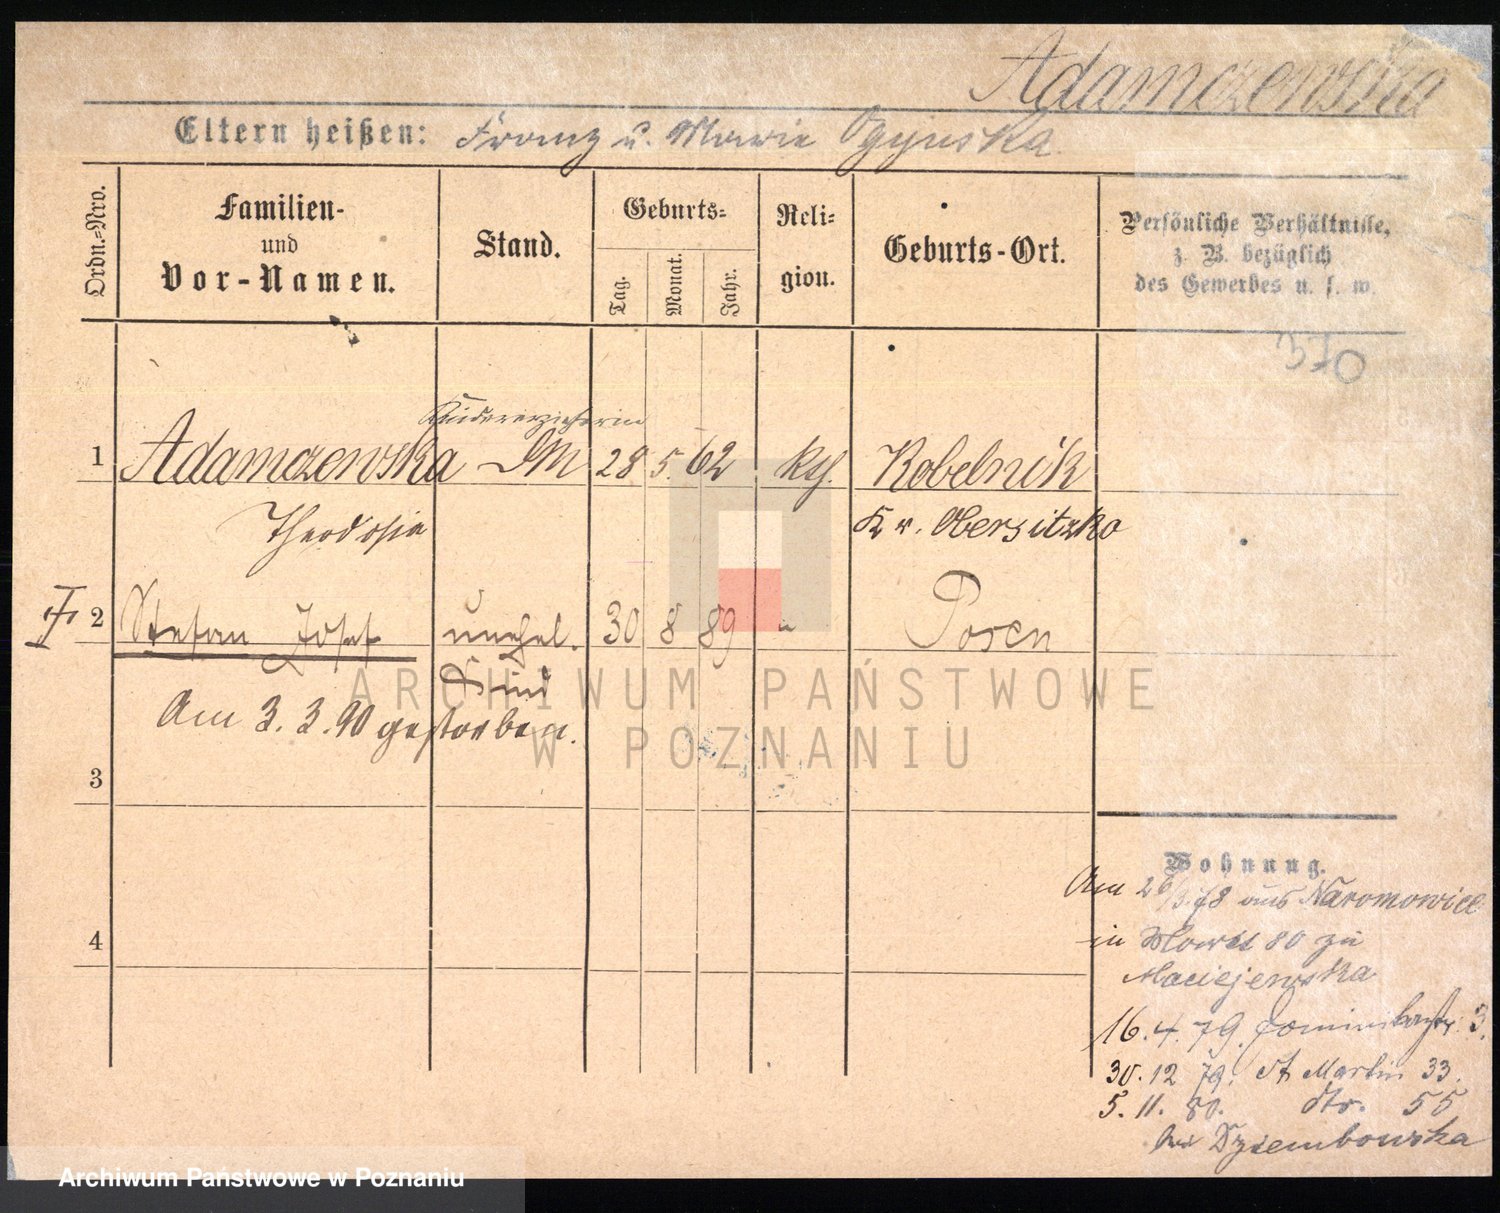 Adamczewska
Eltern heißen: Franz u. Marie Ogynska
Ordn.-Nro.
Familien-
und
Vor-Namen.
Stand.
Geburts-
Tag.
Monat.
Jahr.
Reli-
gion.
Geburts-Ort.
Persönliche Verhältnisse,
z. B. bezüglich
des Gewerbes u. s. w.
Kindererzieherin
1 Adamczewska 28 5. 62 kth. Kobelnik
Theodosia Kr. Obersitzko
2 Stefan Josef unehel. 30 8 89 " Posen
Kind
Am 3. 3. 90 gestorben.
3
4
Wohnung.
Am 26/3 78 aus Naromowice
in Markt 80 zu
Maciejewska
16. 4. 79. Dominikanstr. 3.
30. 12 79. St Martin 33.
5. 11. 80. dto. 55
bei Dziembowska
ARCHIWUM PAŃSTWOWE
W POZNANIU
Archiwum Państwowe w Poznaniu